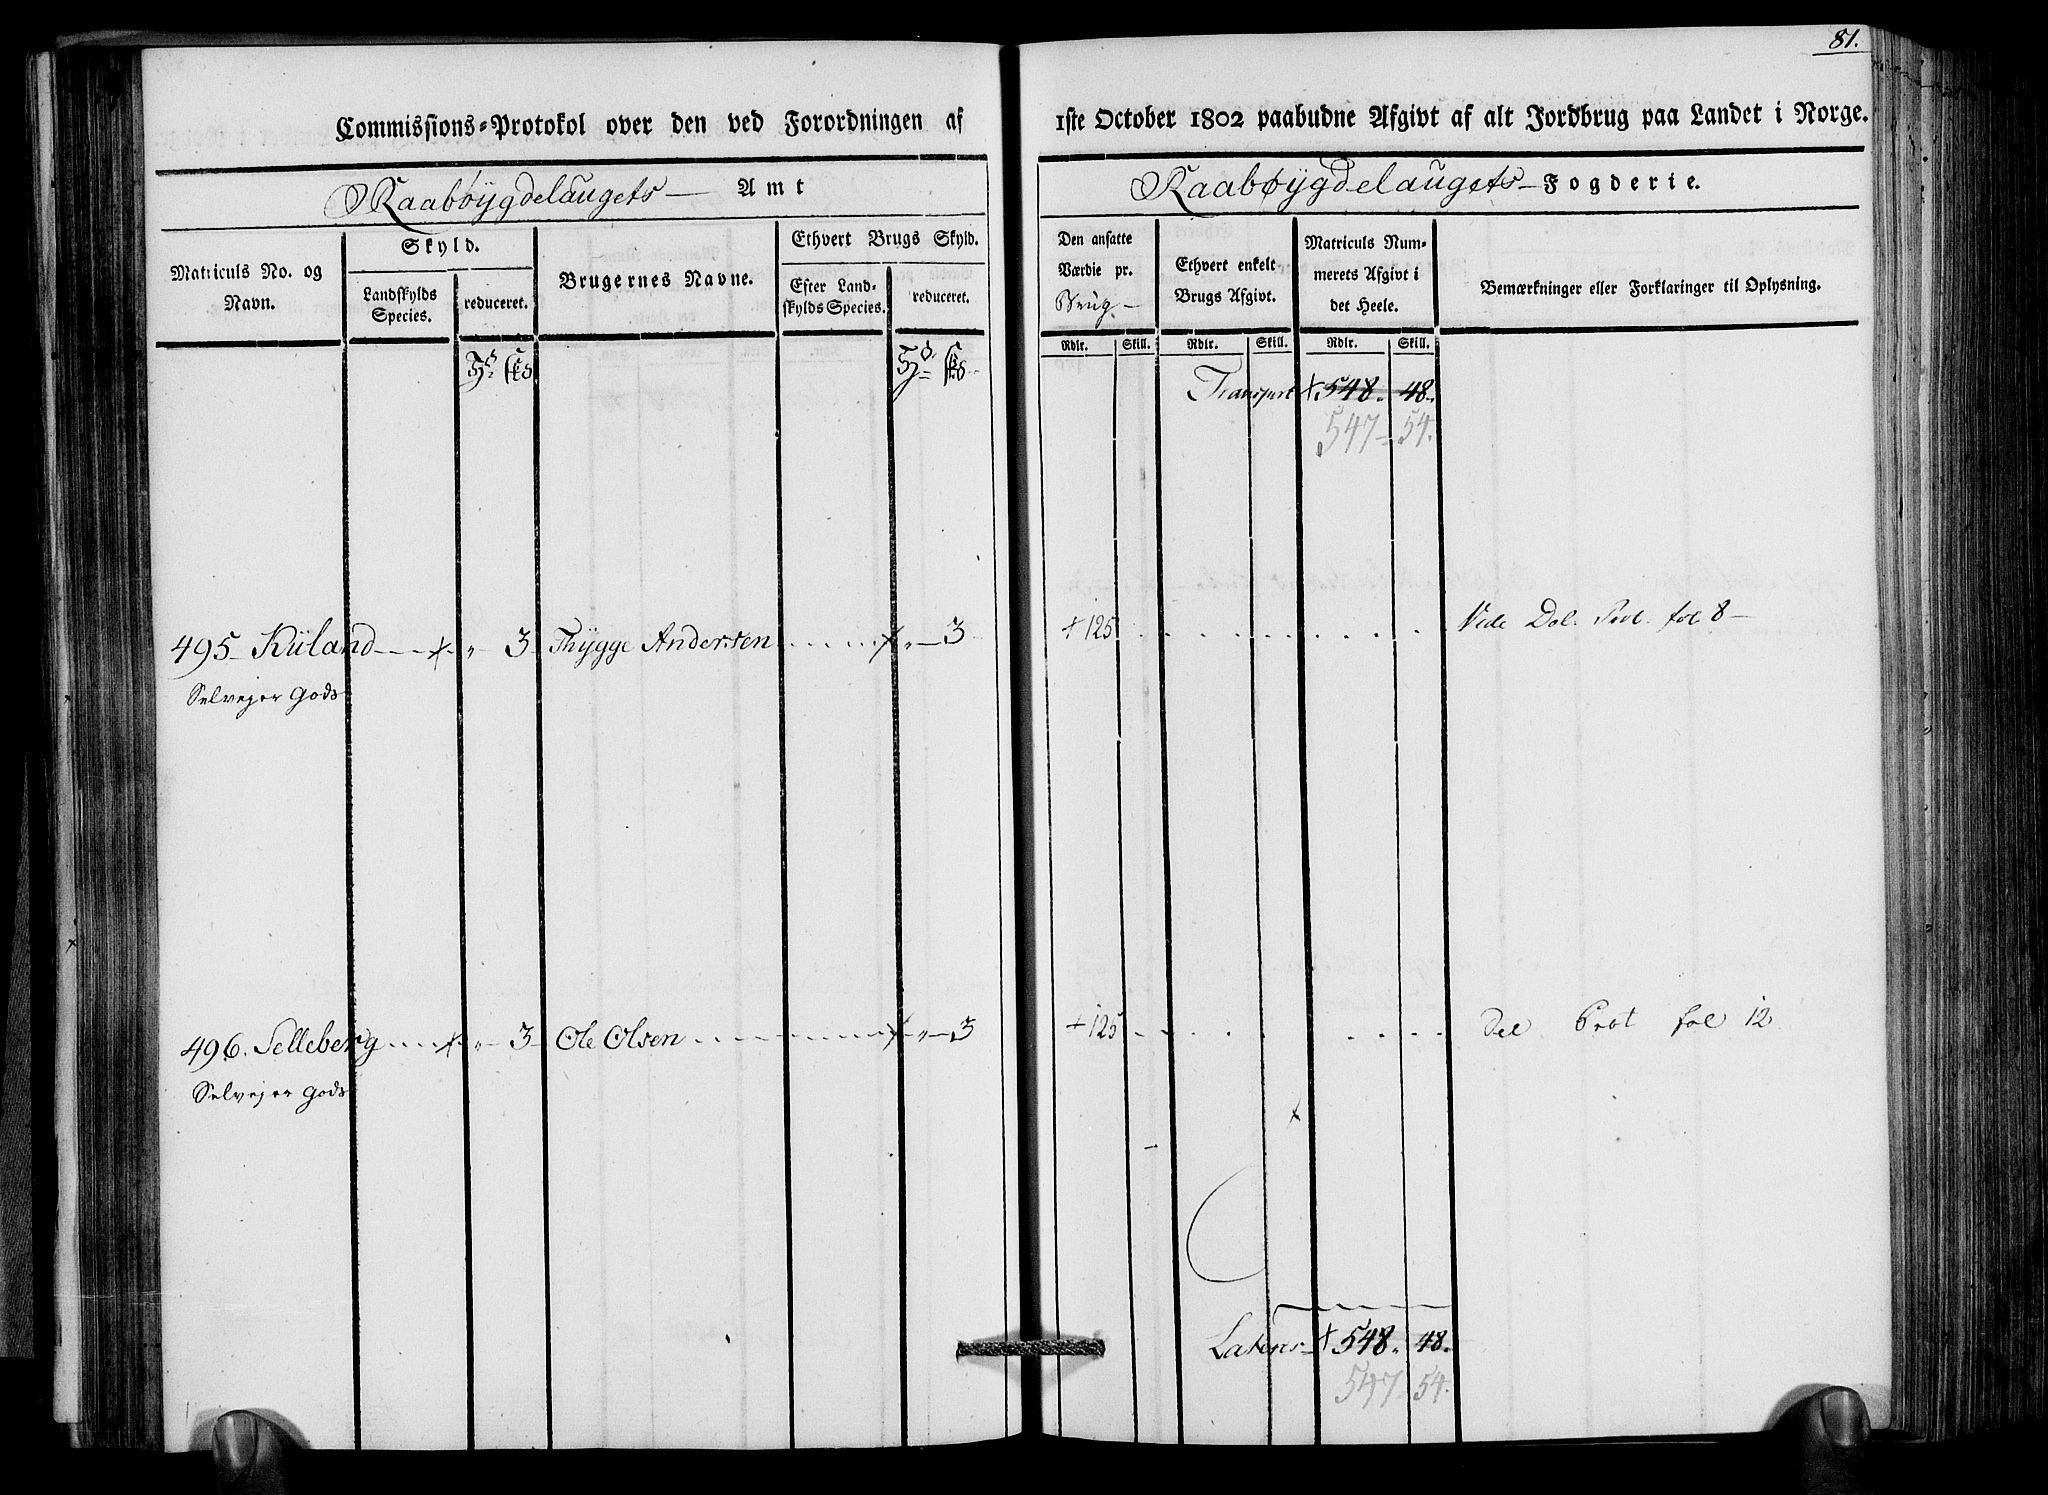 81.
Commissions-Protokol over den ved Forordningen af 1ste October 1802 paabudne Afgivt af alt Jordbrug paa Landet i Norge.
Raabøÿgdelaugets Amt
Raabøÿgdelaugets Fogderie.
Matriculs No. og Navn.
Skyld.
Landskylds Species.
reduceret.
Brugernes Navne.
Ethvert Brugs Skyld.
Efter Landskylds Species.
reduceret.
Den ansatte Værdie pr. Brug
Ethvert enkelt Brugs Afgivt.
Matriculs Nummerets Afgivt i det Heele.
Bemærkninger eller Forklaringer til Oplysning.
Rdlr. Skill. Rdlr. Skill. Rdlr. Skill.
Transport + 548. 48.
547 - 54.
495 Küland + " 3 Thÿgge Andersen + " 3 + 125 Vide Del. Prot. fol 8
Selvejer Gods
496. Selleberg + " 3 Ole Olsen + " 3 + 125 Del Prot fol 12
Selvejer Gods
Lateris + 548. 48.
547 54.